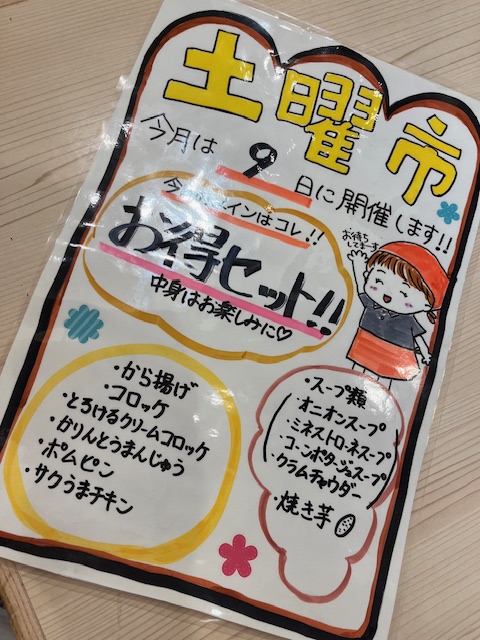 土曜市
今月は 9 日に開催します!!
今月のメインはコレ!!
お得セット!!
中身はお楽しみに♡
お待ち
してまーす
・から揚げ
・コロッケ
・とろけるクリームコロッケ
・かりんとうまんじゅう
・ポムピン
・サクうまチキン
・スープ類
・オニオンスープ
・ミネストローネスープ
・コーンポタージュスープ
・クラムチャウダー
・焼き芋